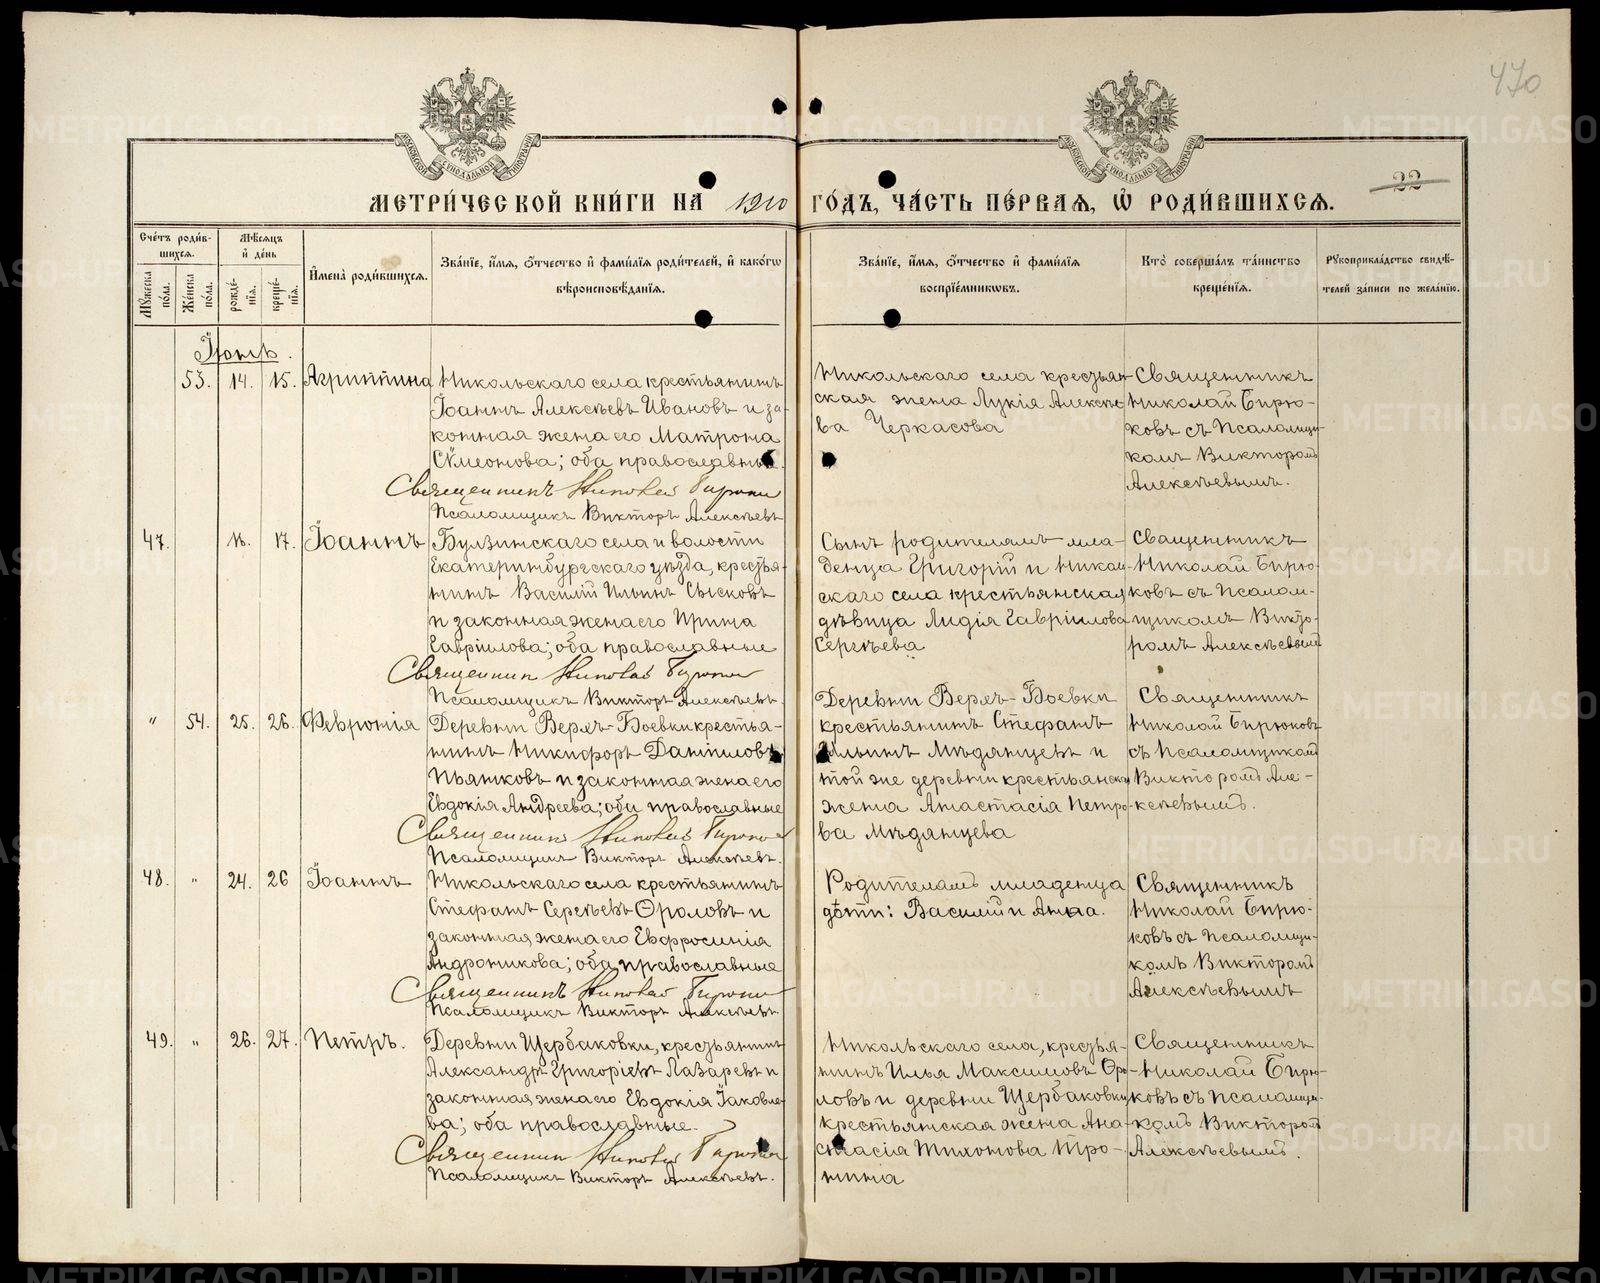 470
МОСКОВСКОЙ СѴНОДАЛЬНОЙ ТИПОГРАФІИ
МОСКОВСКОЙ СѴНОДАЛЬНОЙ ТИПОГРАФІИ
МЕТРИ́ЧЕСКОЙ КНИ́ГИ НА 1910 ГО́ДЪ, ЧА́СТЬ ПЕ́РВАѦ, Ѡ РОДИ́ВШИХСѦ.
22
Сче́тъ роди́в-
шихсѧ.
Мꙋ́жеска по́ла.
Же́нска по́ла.
Мѣ́сѧцъ и҆ де́нь
рожде́-
нїѧ.
креще́-
нїѧ.
И҆мена̀ роди́вшихсѧ.
Зва́нїе, и҆́мѧ, ѻ҆́тчество и҆ фами́лїѧ роди́телей, и҆ како́гѡ
вѣроисповѣ́данїѧ.
Зва́нїе, и҆́мѧ, ѻ҆́тчество и҆ фами́лїѧ
воспрїе́мникѡвъ.
Кто̀ соверша́лъ та́инство
креще́нїѧ.
Рꙋкоприкла́дство свидѣ́-
телей за́писи по жела́нїю.
Іюнь.
53. 14. 15. Агриппина
Никольскаго села крестьянинъ
Іоаннъ Алексѣевъ Ивановъ и за-
конная жена его Матрона
Сѵмеонова; оба православные.
Священникъ Николай Бирюков
Псаломщикъ Викторъ Алексѣевъ
Никольскаго села крестьян-
ская жена Лукія Алексѣе-
ва Черкасова
Священникъ
Николай Бирю-
ковъ съ Псаломщи-
комъ Викторомъ
Алексѣевымъ.
47. 17. Іоаннъ
Булзинскаго села и волости
Екатеринбургскаго уѣзда, крестья-
нинъ Василій Ильинъ Сысковъ
и законная жена его Ирина
Гавріилова; оба православные
Священник Николай Бирюков
Псаломщикъ Викторъ Алексѣевъ.
Сынъ родителямъ мла-
денца Григорій и Николь-
скаго села крестьянская
дѣвица Лидія Гавріилова
Сергѣева
Священникъ
Николай Бирю-
ковъ съ Псалом-
щикомъ Викто-
ромъ Алексѣевымъ
" 54. 25. 26. Февронія
Деревни Верхъ-Боевки крестья-
нинъ Никифоръ Даніиловъ
Пьянковъ и законная жена его
Евдокія Андреева; оба православные
Священникъ Николай Бирюков
Псаломщикъ Викторъ Алексѣевъ.
Деревни Верхъ-Боевки
крестьянинъ Стефанъ
Ильинъ Мѣдянцевъ и
той же деревни крестьянская
жена Анастасія Петро-
ва Мѣдянцева
Священникъ
Николай Бирюковъ
съ Псаломщикомъ
Викторомъ Але-
ксѣевымъ.
48. " 24. 26 Іоаннъ
Никольскаго села крестьянинъ
Стефанъ Сергѣевъ Ѳроловъ и
законная жена его Евфросинія
Андроникова; оба православные
Священникъ Николай Бирюков
Псаломщикъ Викторъ Алексѣевъ
Родителямъ младенца
дѣти: Василій и Анна.
Священникъ
Николай Бирю-
ковъ съ Псаломщи-
комъ Викторомъ
Алексѣевымъ
49. " 26. 27. Петръ.
Деревни Щербаковки, крестьянинъ
Александръ Григоріевъ Лазаревъ и
законная жена его Евдокія Іаковле-
ва; оба православные.
Священник Николай Бирюков
Псаломщикъ Викторъ Алексѣевъ.
Никольскаго села, крестья-
нинъ Илья Максимовъ Ѳро-
ловъ и деревни Щербаковки
крестьянская жена Ана-
стасія Тихонова Тро-
нина
Священникъ
Николай Бирю-
ковъ съ Псаломщи-
комъ Викторомъ
Алексѣевымъ.
METRIKI.GASO-URAL.RU